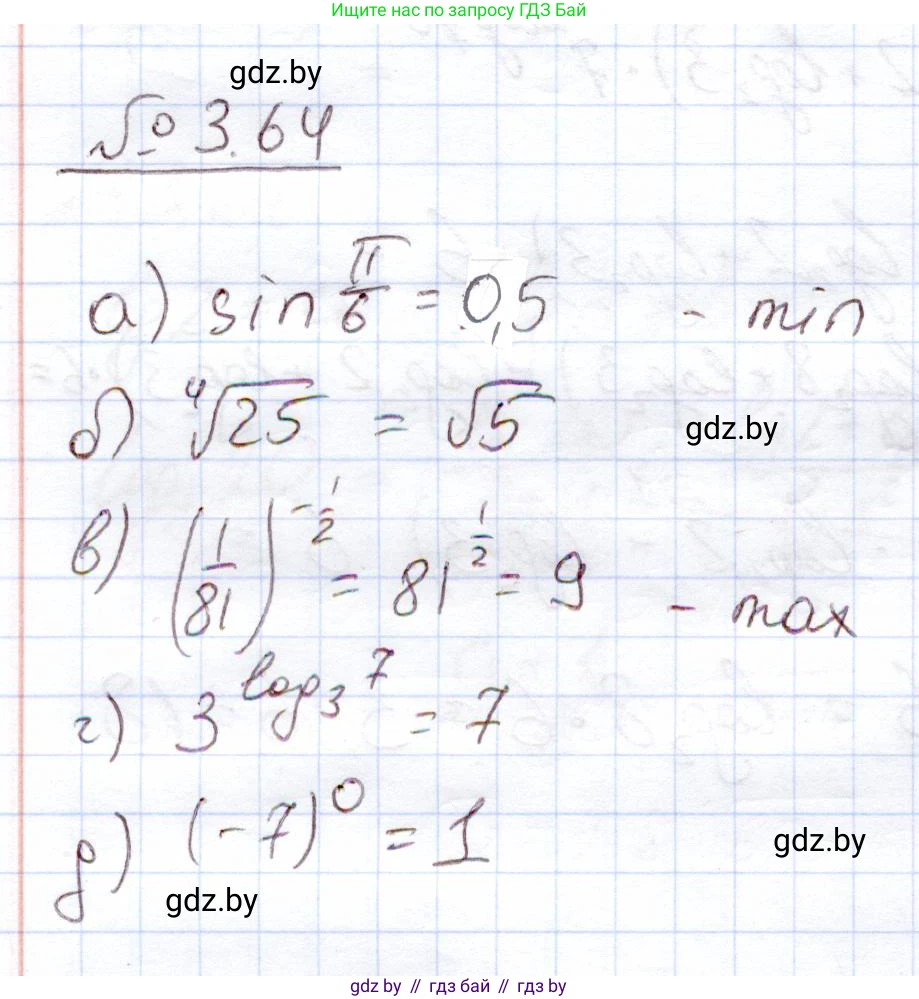 Ищите нас по запросу ГДЗ Бай
gdz.by
№ 3.64
а) sin π/6 = 0,5 - min
б) ⁴√25 = √5
gdz.by
в) (1/81)^(-1/2) = 81^(1/2) = 9 - max
г) 3^(log₃7) = 7
д) (-7)⁰ = 1
gdz.by
gdz.by
gdz by // гдз бай // gdz by